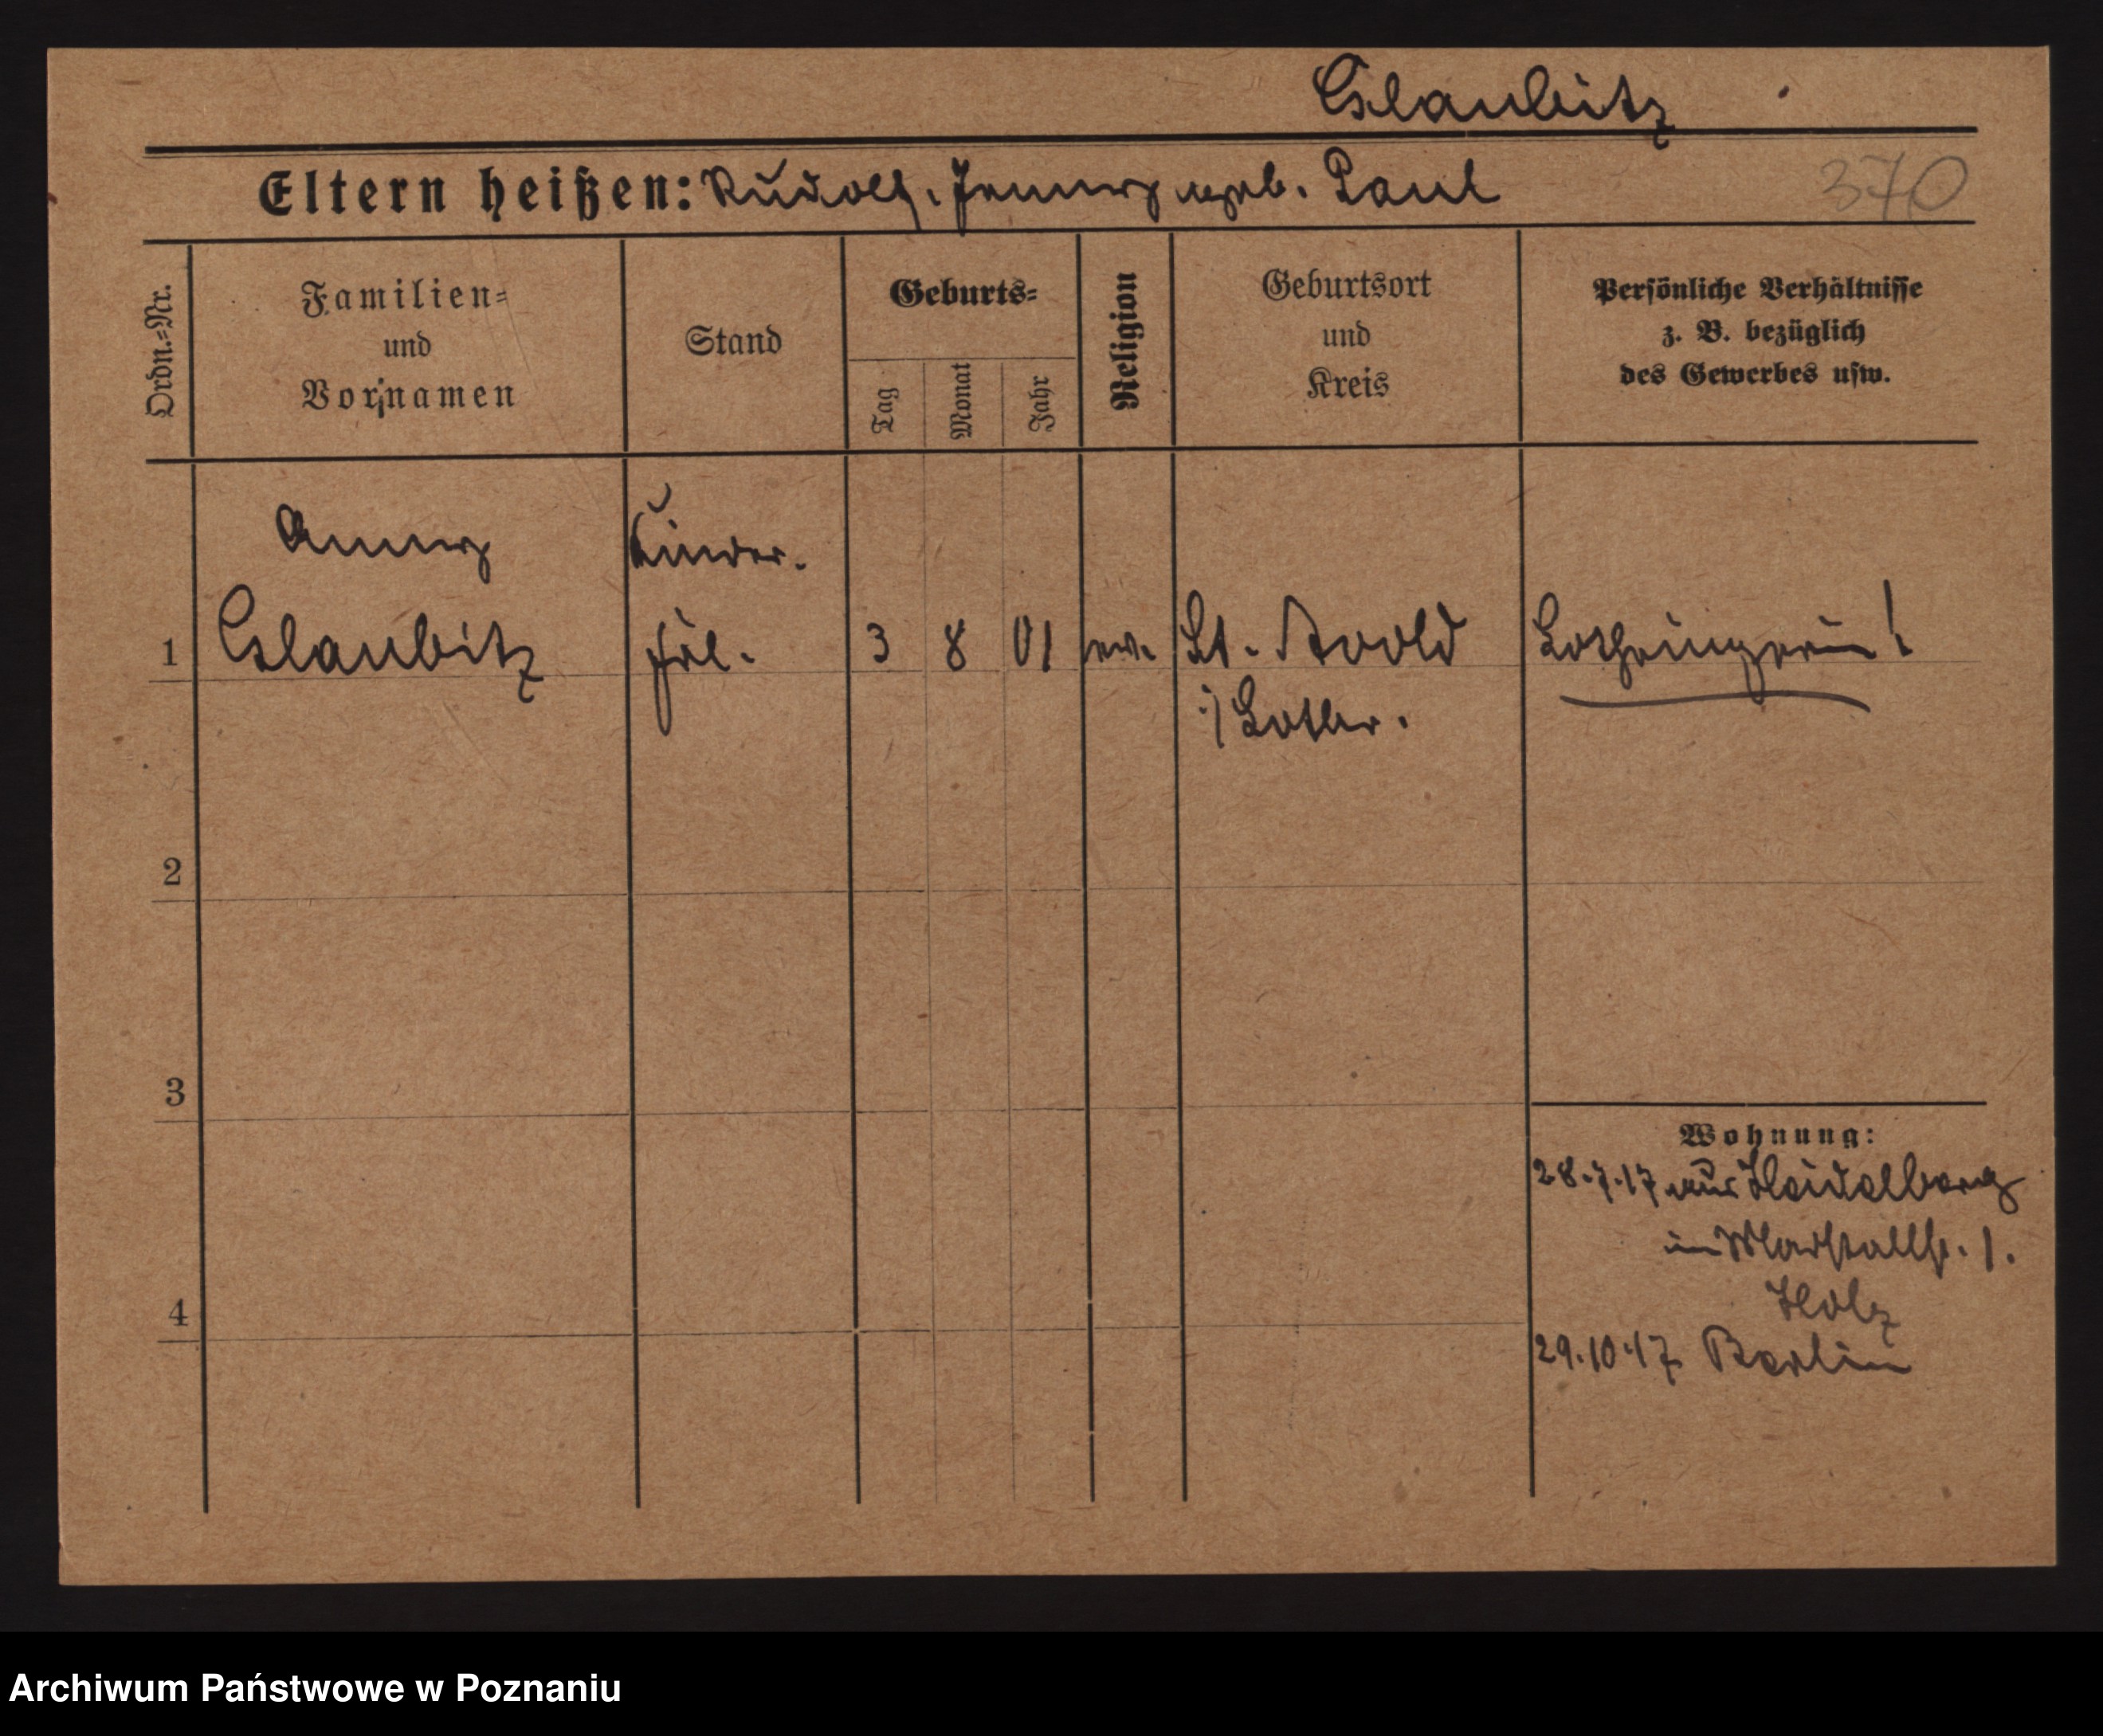 Glaubitz
Eltern heißen: Rudolf, Jenny geb. Paul
370
Ordn.=Nr.
Familien=
und
Vornamen
Stand
Geburts=
Tag
Monat
Jahr
Religion
Geburtsort
und
Kreis
Persönliche Verhältnisse
z. B. bezüglich
des Gewerbes usw.
Anny Kinder.
1 Glaubitz frl. 3 8 01 ev. St. Avold Lothringerin!
i/Lothr.
2
3
Wohnung:
28.7.17 aus Heidelberg
in Marstallstr. 1.
4 Holz
29.10.17 Berlin
Archiwum Państwowe w Poznaniu